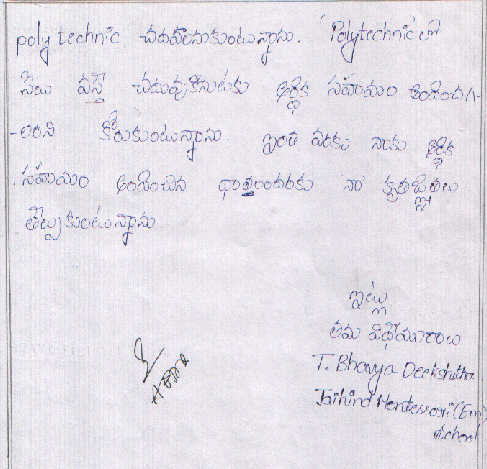 polytechnic చదవాలనుకుంటున్నాను. Polytechnic లో
సీటు వస్తే చదువుకొనుటకు ఆర్థిక సహాయం అందించగ-
-లరని కోరుకుంటున్నాను ఇంత వరకు నాకు ఆర్థిక
సహాయం అందించిన దాతలందరకు నా కృతజ్ఞతలు
తెల్పుకుంటున్నాను
ఇట్లు
తమ విధేయురాలు
T. Bhavya Deekshitha
Jaihind Montessori (Em)
school